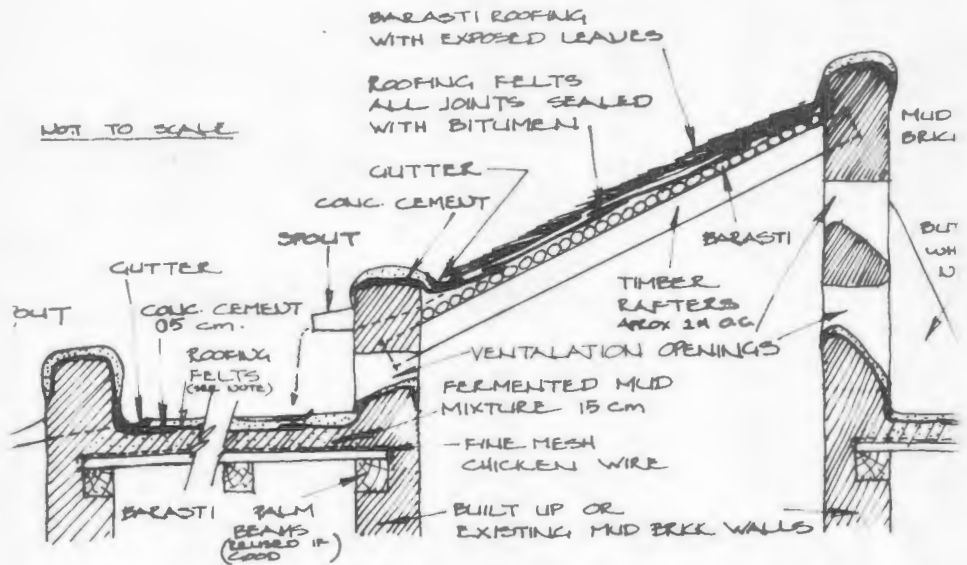 BARASTI ROOFING
WITH EXPOSED LEAVES
ROOFING FELTS
ALL JOINTS SEALED
WITH BITUMEN
NOT TO SCALE
MUD
BRIC
GUTTER
CONC. CEMENT
SPOUT
BARASTI
GUTTER
TIMBER
RAFTERS
APROX 1M O.C.
OUT
CONC. CEMENT
05 cm.
ROOFING
FELTS
(SEE NOTE)
VENTALATION OPENINGS
FERMENTED MUD
MIXTURE 15 cm
FINE MESH
CHICKEN WIRE
BARASTI
PALM
BEAMS
(REUSED IF
GOOD)
BUILT UP OR
EXISTING MUD BRICK WALLS